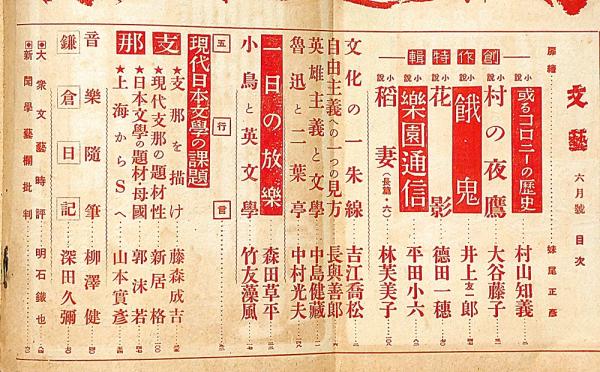 文藝 六月號 目次
扉繪 妹尾正彥
創作特輯
小說 或るコロニーの歷史 村山知義
小說 村の夜鷹 大谷藤子
小說 餓鬼 井上友一郎
小說 花影 德田一穗
小說 樂園通信 平田小六
小說 稻妻(長篇・六) 林芙美子
文化の一朱線 吉江喬松
自由主義への一つの見方 長與善郎
英雄主義と文學 中島健藏
魯迅と二葉亭 中村光夫
一日の放樂 森田草平
小鳥と英文學 竹友藻風
五行言
現代日本文學の課題
支那
★支那を描け 藤森成吉
★現代支那の題材性 新居格
★日本文學の題材・母國 郭沫若
★上海からSへ 山本實彥
音樂隨筆 柳澤健
鎌倉日記 深田久彌
大衆文藝時評 明石鐵也
新聞學藝欄批判